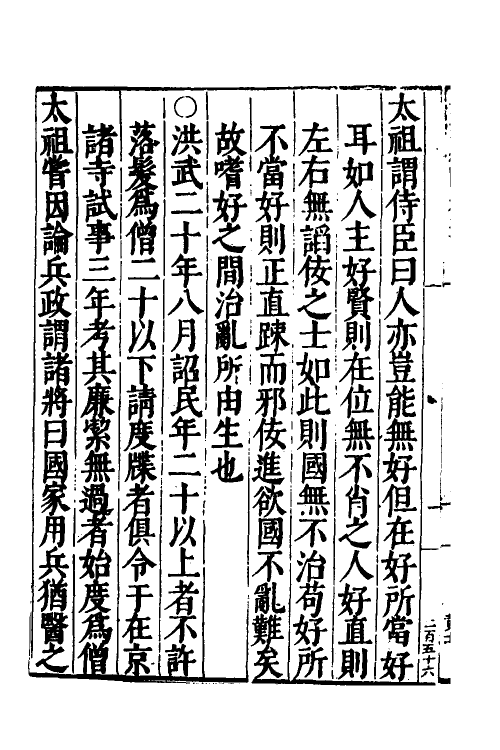 太祖謂侍臣曰人亦豈能無好但在好所當好
耳如人主好賢則在位無不肖之人好直則
左右無謟佞之士如此則國無不治苟好所
不當好則正直踈而邪佞進欲國不亂難矣
故嗜好之間治亂所由生也
○洪武二十年八月詔民年二十以上者不許
落髮爲僧二十以下請度牒者俱令于在京
諸寺試事三年考其廉潔無過者始度爲僧
太祖甞因論兵政謂諸將曰國家用兵猶醫之
二百五十六